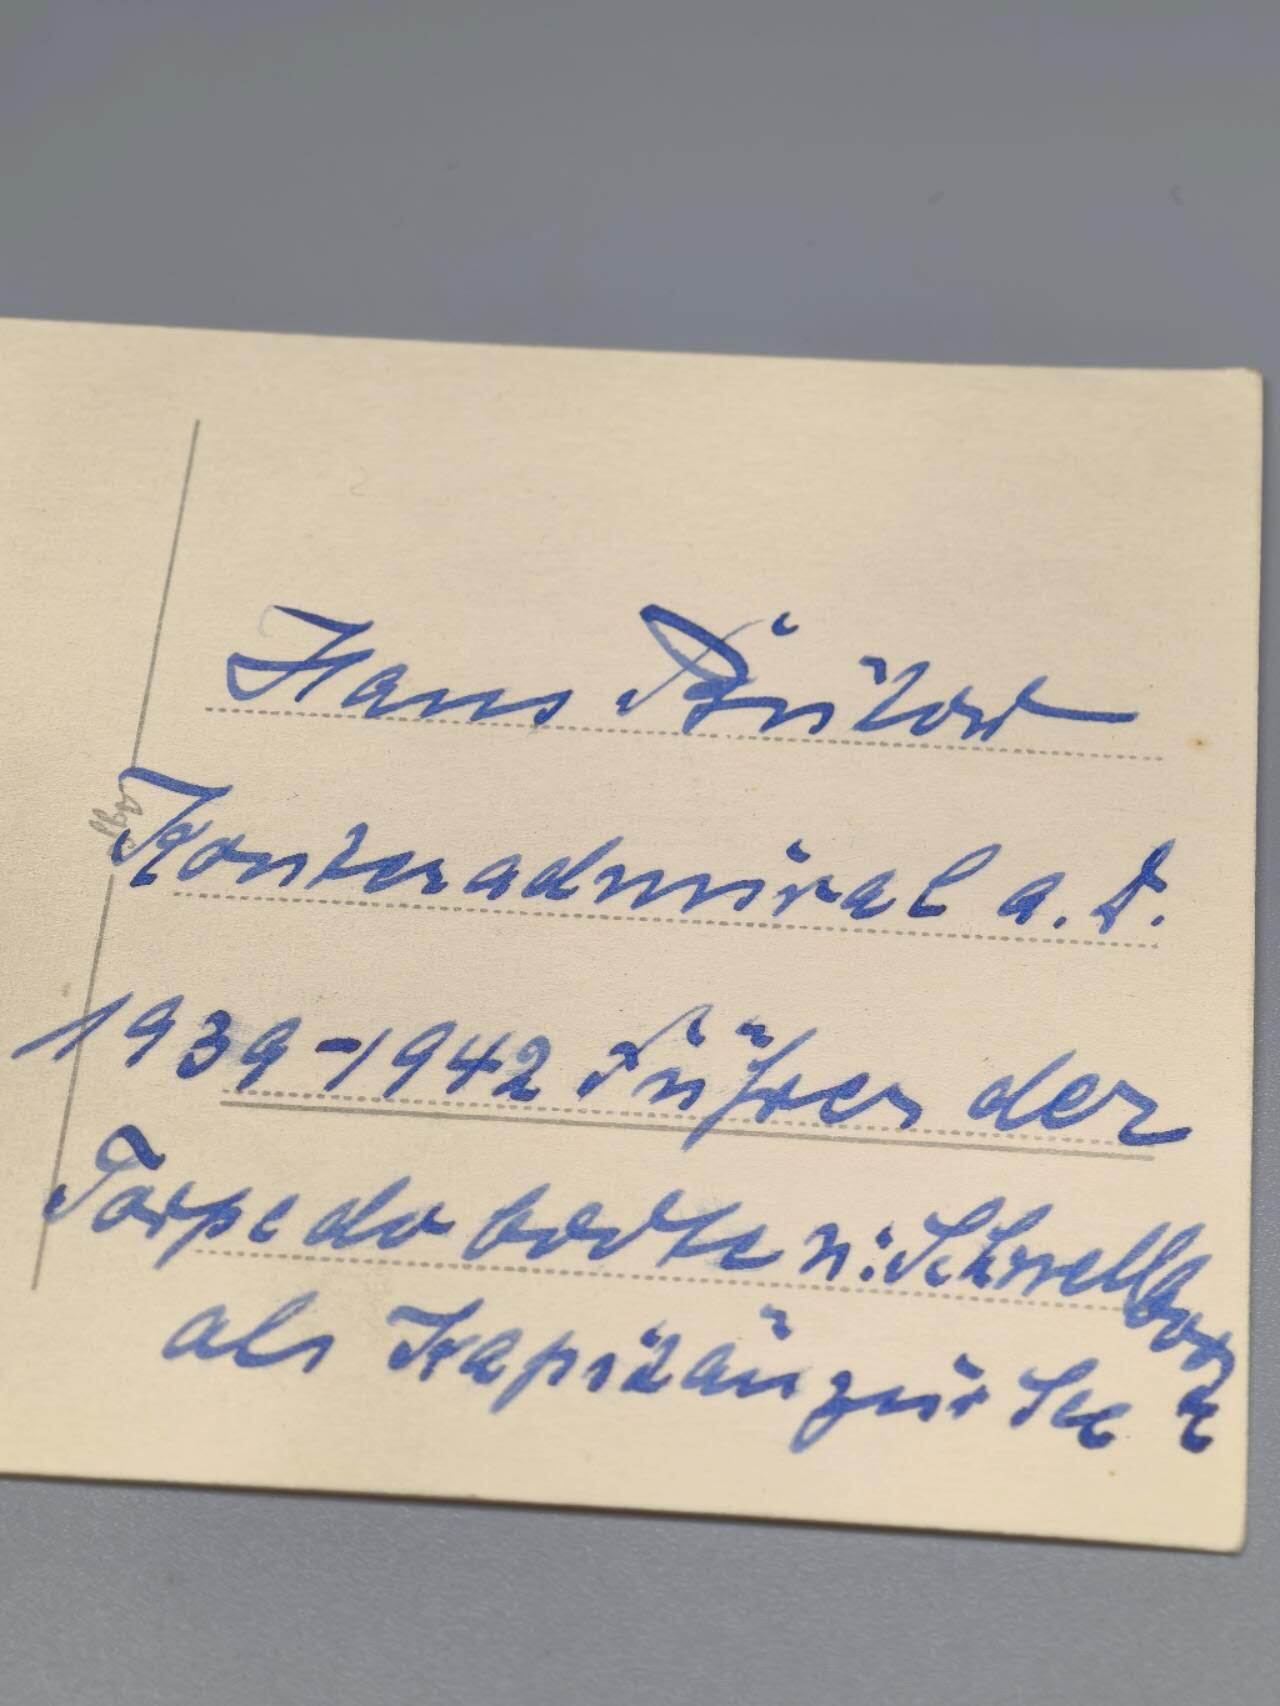 Hans Bütow
Konteradmiral a. D.
1939-1942 Führer der
Torpedoboote u. Schnellboote
als Kapitän zur See